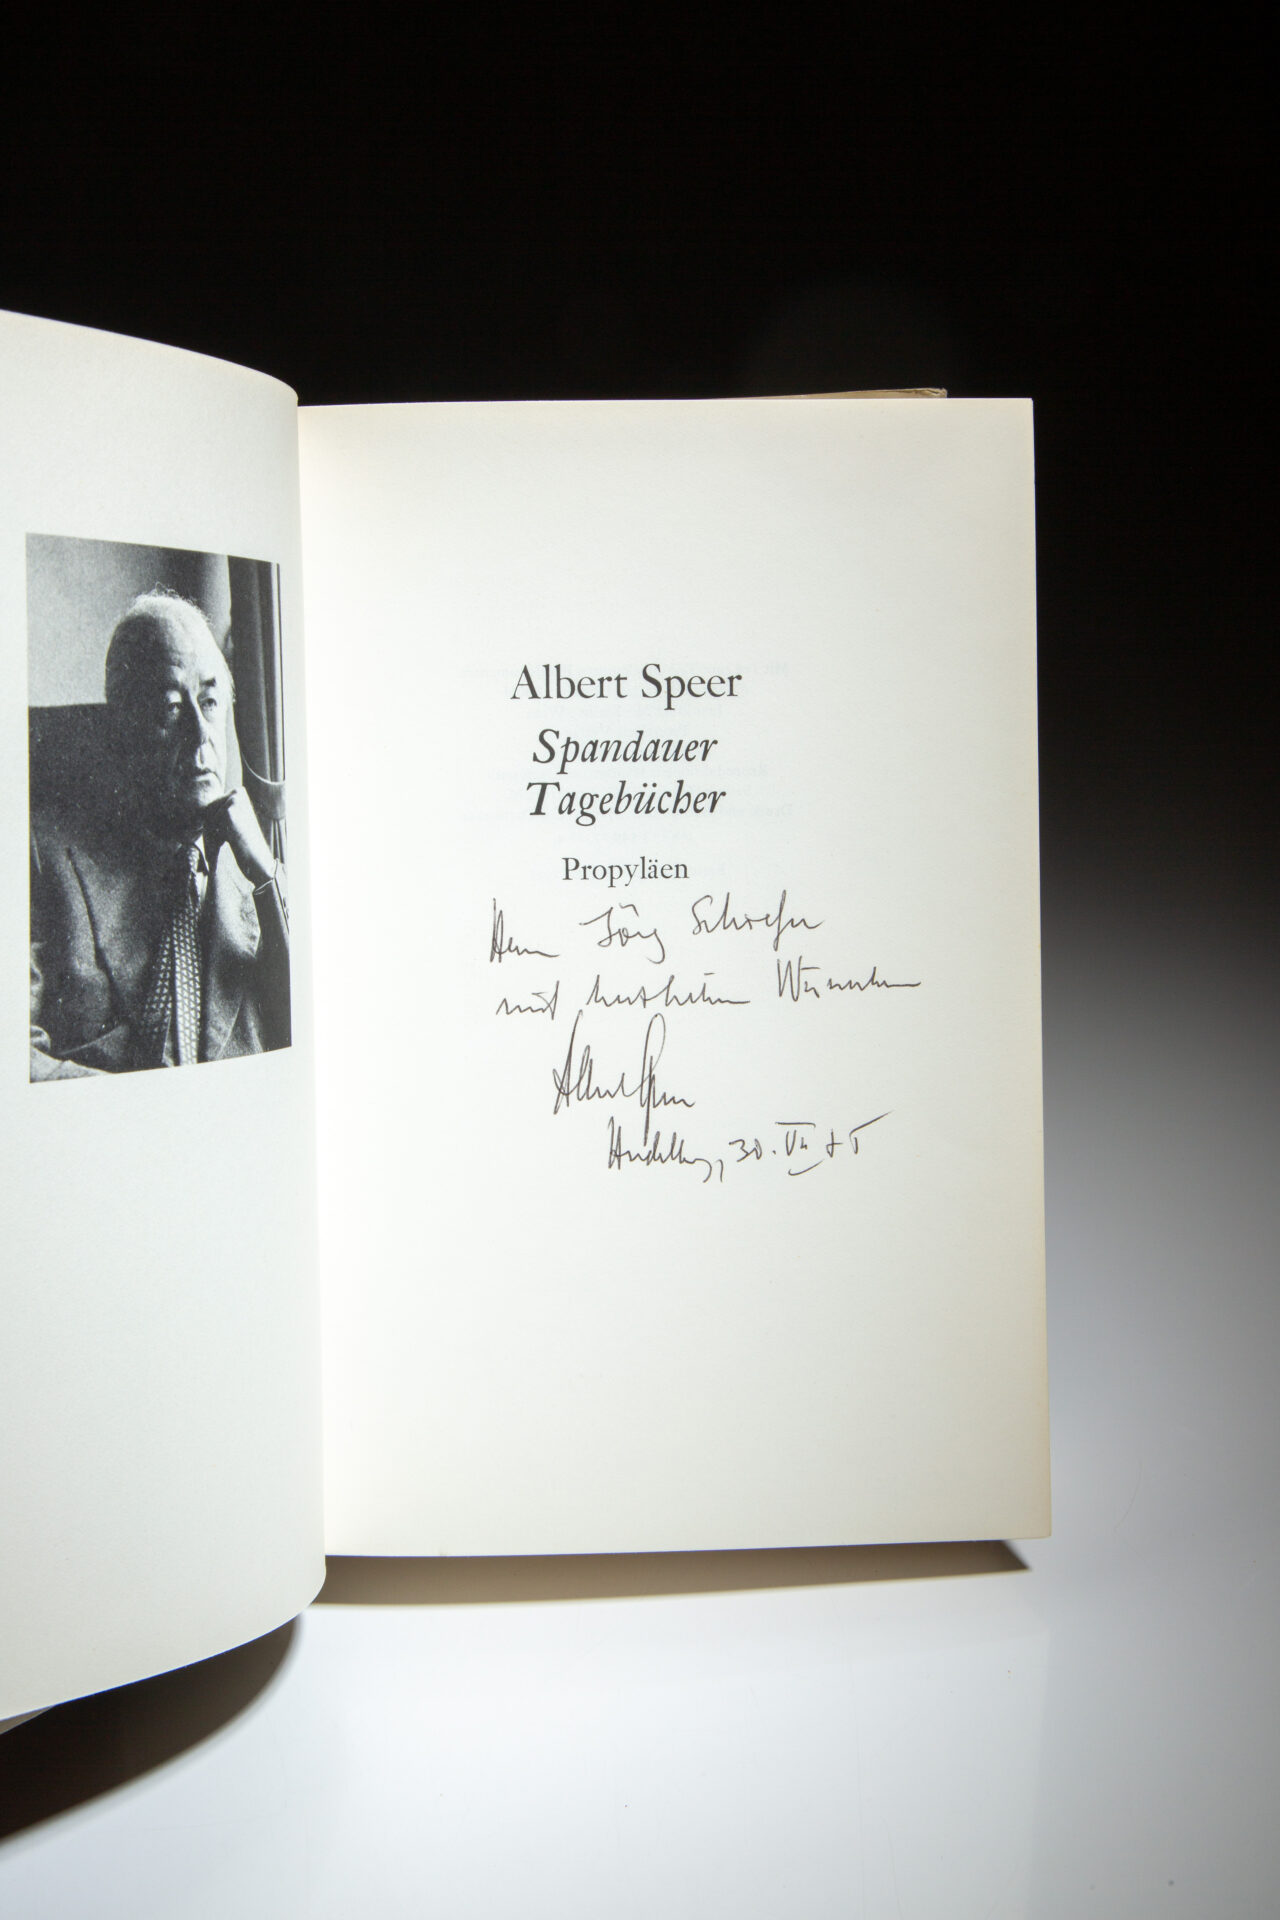 Albert Speer
Spandauer
Tagebücher
Propyläen
Herrn Jörg
mit herzlichen Wünschen
Albert Speer
Heidelberg, 30. VII